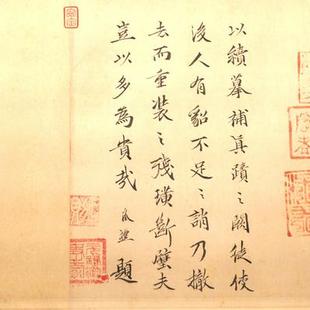 以續摹補真蹟之闕徒使
後人有貂不足之誚乃撤
去而重裝之殘璜斷璧夫
豈以多為貴哉 題